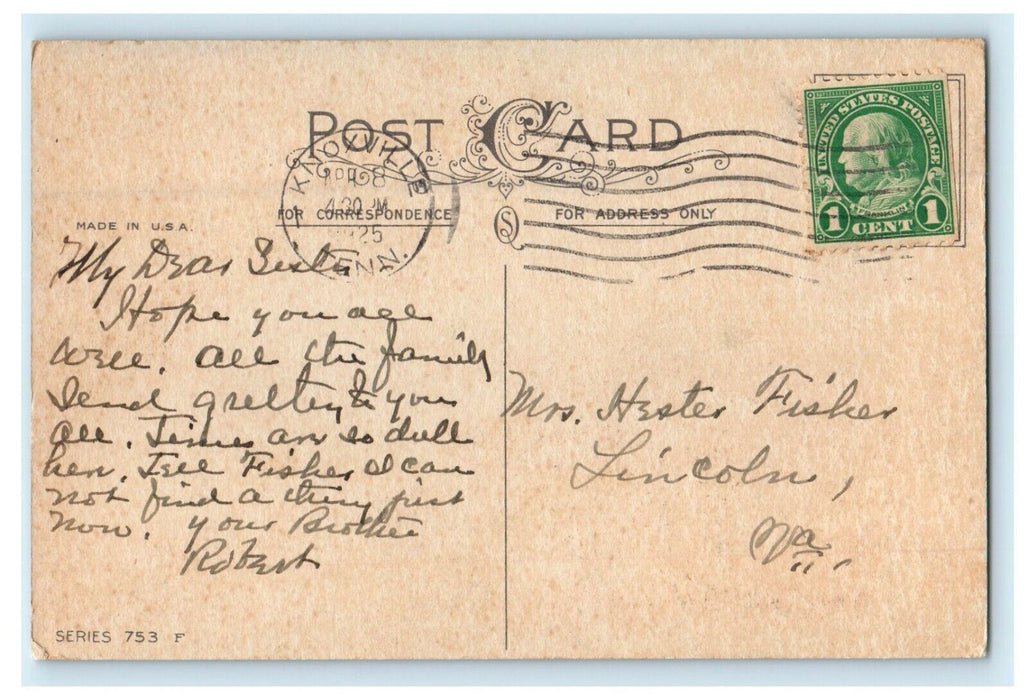 POST CARD
KNOXVILLE
APR 8
4 30 PM
1925
TENN.
FOR CORRESPONDENCE
FOR ADDRESS ONLY
MADE IN U.S.A.
UNITED STATES POSTAGE
FRANKLIN
1 CENT 1
S
My Dear Sister
Hope you are
well. all the family
send greeting to you
all. Times are so dull
here. Tell Fisher I can
not find a thing just
now. your Brother
Robert
Mrs. Hester Fisher
Lincoln,
Va.
SERIES 753 F